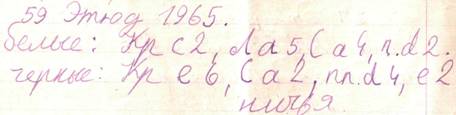 59 Этюд 1965.
белые: Кр c2, Ла5, Са4, п. d2.
черные: Кр e6, Са2, пп. d4, e2
ничья